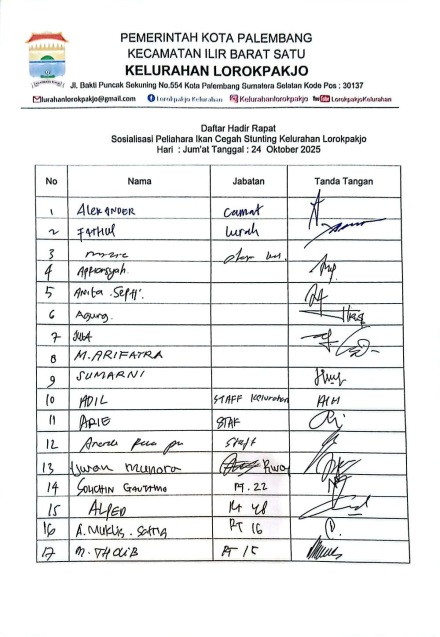 PEMERINTAH KOTA PALEMBANG
KECAMATAN ILIR BARAT SATU
KELURAHAN LOROKPAKJO
Jl. Bakti Puncak Sekuning No.554 Kota Palembang Sumatera Selatan Kode Pos : 30137
lurahanlorokpakjo@gmail.com Lorokpakjo Kelurahan Kelurahanlorokpakjo LorokpakjoKelurahan
Daftar Hadir Rapat
Sosialisasi Peliahara Ikan Cegah Stunting Kelurahan Lorokpakjo
Hari : Jum'at Tanggal : 24 Oktober 2025
No Nama Jabatan Tanda Tangan
1 ALEXANDER Camat
2 FATHUL Lurah
3
4 Apriansyah.
5 Anita . Septi.
6 Agung.
7
8 M. ARIFATRA
9 SUMARNI
10 ADIL STAFF Kelurahan
11 ARIE STAF
12 Staff
13 Munora
14 RT. 22
15 ALFED RT 48
16 A. Muklis . RT 16
17 M. THOIB RT 15